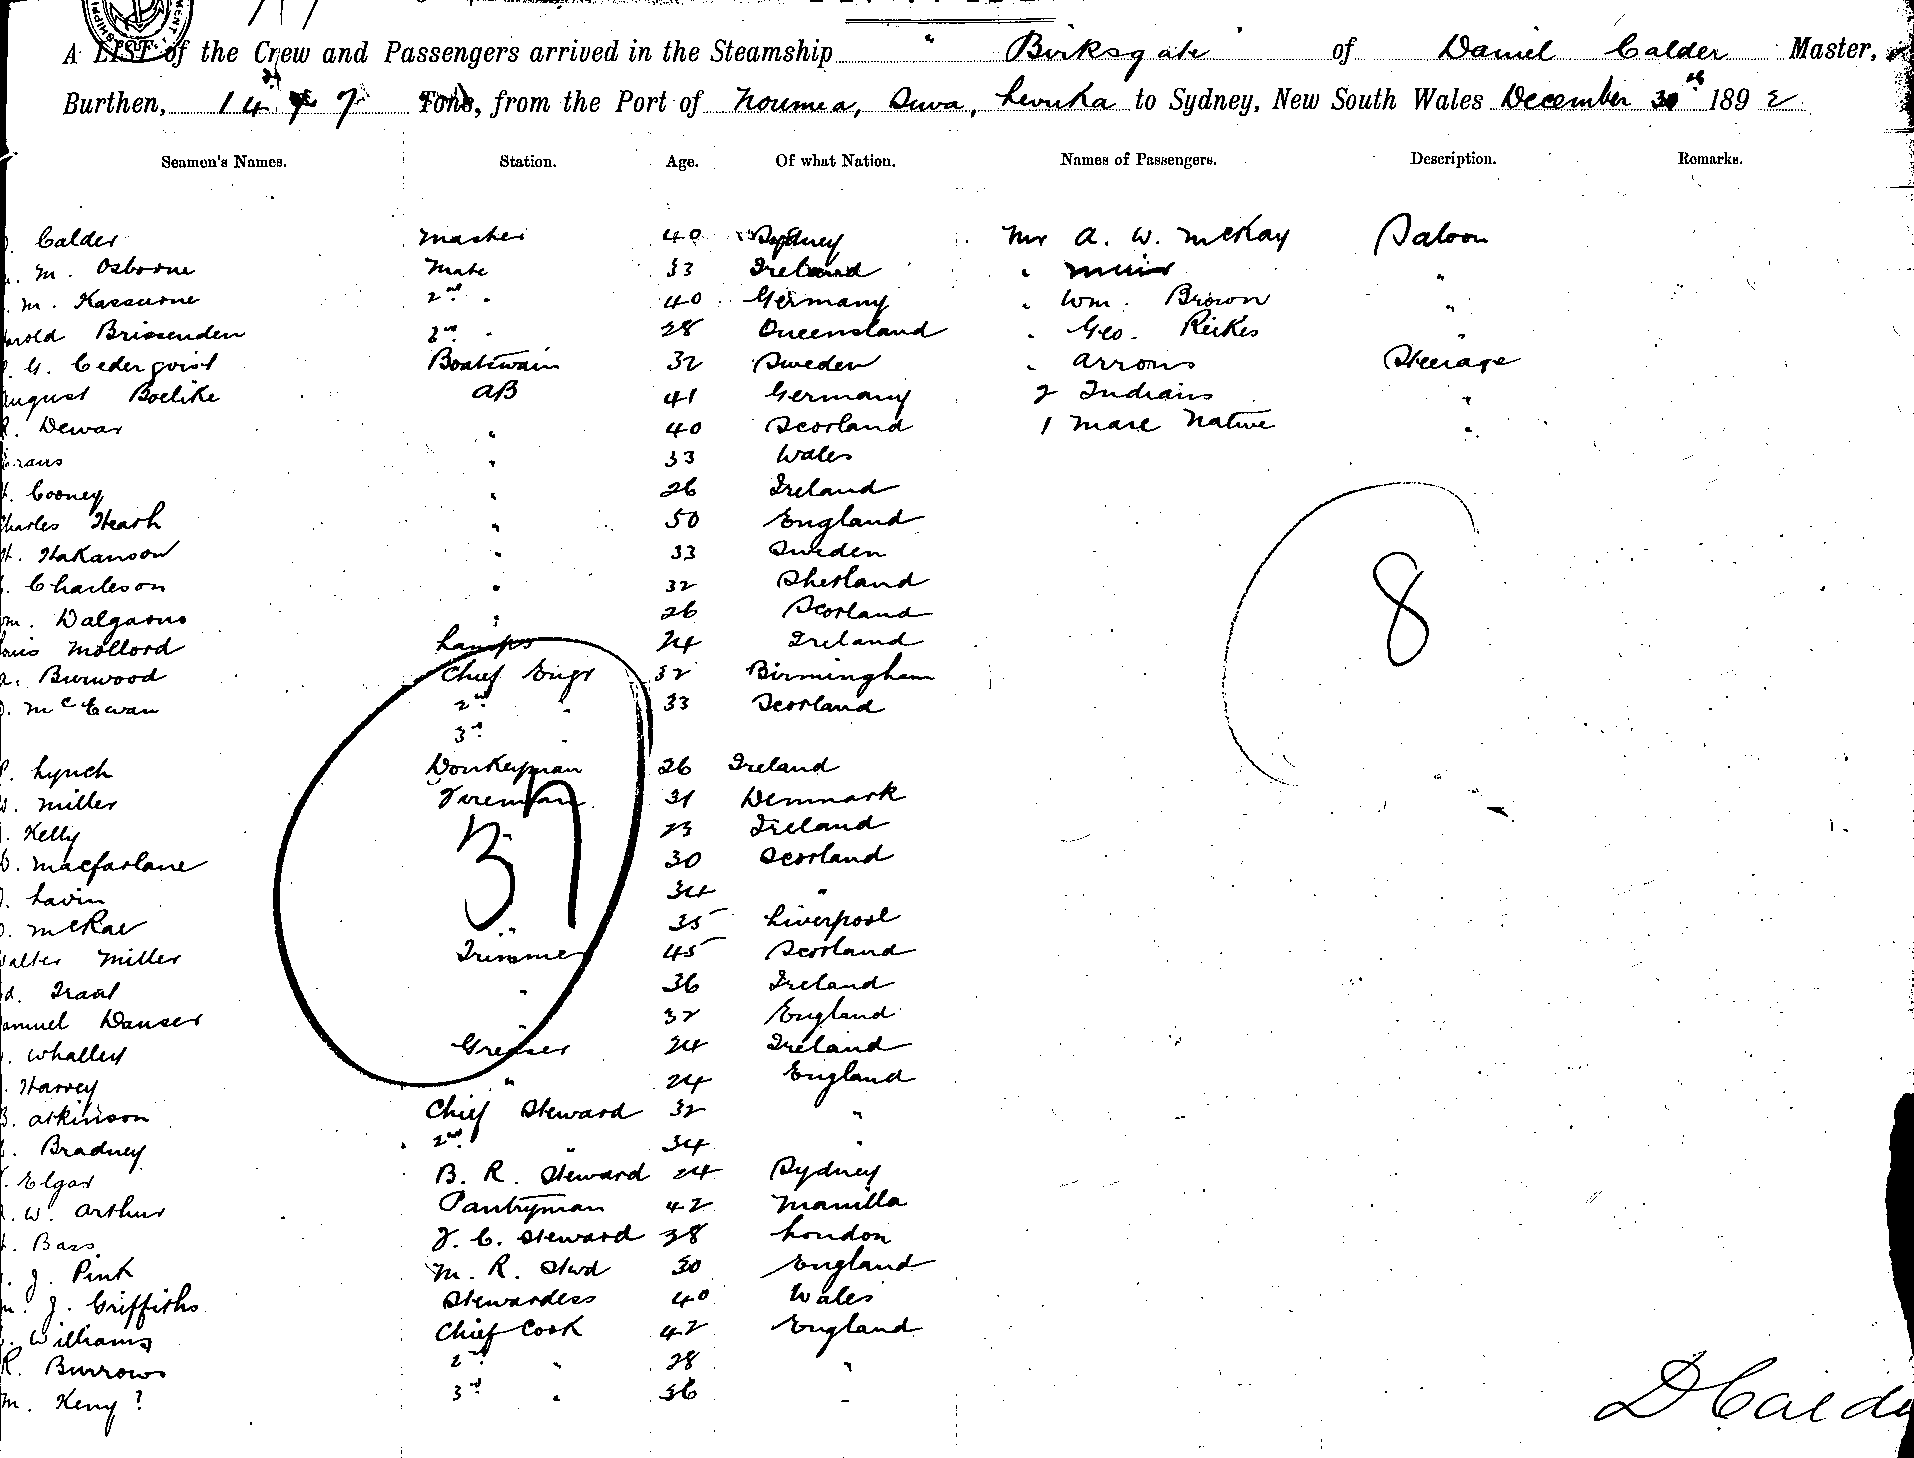 A LIST of the Crew and Passengers arrived in the Steamship " Birksgate " of Daniel Calder Master,
Burthen, Tons, from the Port of Noumea, Suva, Levuka to Sydney, New South Wales December 30th 1892
Seamen's Names. Station. Age. Of what Nation. Names of Passengers. Description. Remarks.
Calder Master 40 Sydney Mr A. W. McKay Saloon
M. Osborne Mate 33 Ireland " Muir "
M. 2nd " 40 Germany " Wm. Brown "
Brissenden 3rd " 28 Queensland " Geo. "
G. Cederqvist Boatswain 32 Sweden " Arrons Steerage
August Boelike AB 41 Germany 2 Indians "
Dewar " 40 Scotland 1 Mare Native "
Evans " 33 Wales
Cooney " 26 Ireland
Charles Heath " 50 England
H. Hakanson " 33 Sweden
Charleson " 32 Shetland
Wm. Dalgarno " 26 Scotland
Louis Mollord Lamps 24 Ireland
Burwood Chief Engr 32 Birmingham
McEwan 2nd " 33 Scotland
3rd "
P. Lynch Donkeyman 26 Ireland
Miller Fireman 31 Denmark
Kelly 23 Ireland
Macfarlane 30 Scotland
Lavin 34 "
McRae " 35 Liverpool
Walter Miller Trimmer 45 Scotland
" 36 Ireland
Samuel Danser " 32 England
Whalley Greaser 24 Ireland
Harvey " 24 England
Atkinson Chief Steward 32 "
Bradney 2nd " 34 "
Elgar B. R. Steward 24 Sydney
W. Arthur Pantryman 42 Manilla
Bass F. C. Steward 38 London
J. Pink M. R. Stwd 30 England
J. Griffiths Stewardess 40 Wales
Williams Chief Cook 42 England
R. Burrows 2nd " 28 "
M. Keny ? 3rd " 36 "
37
8
D Calde